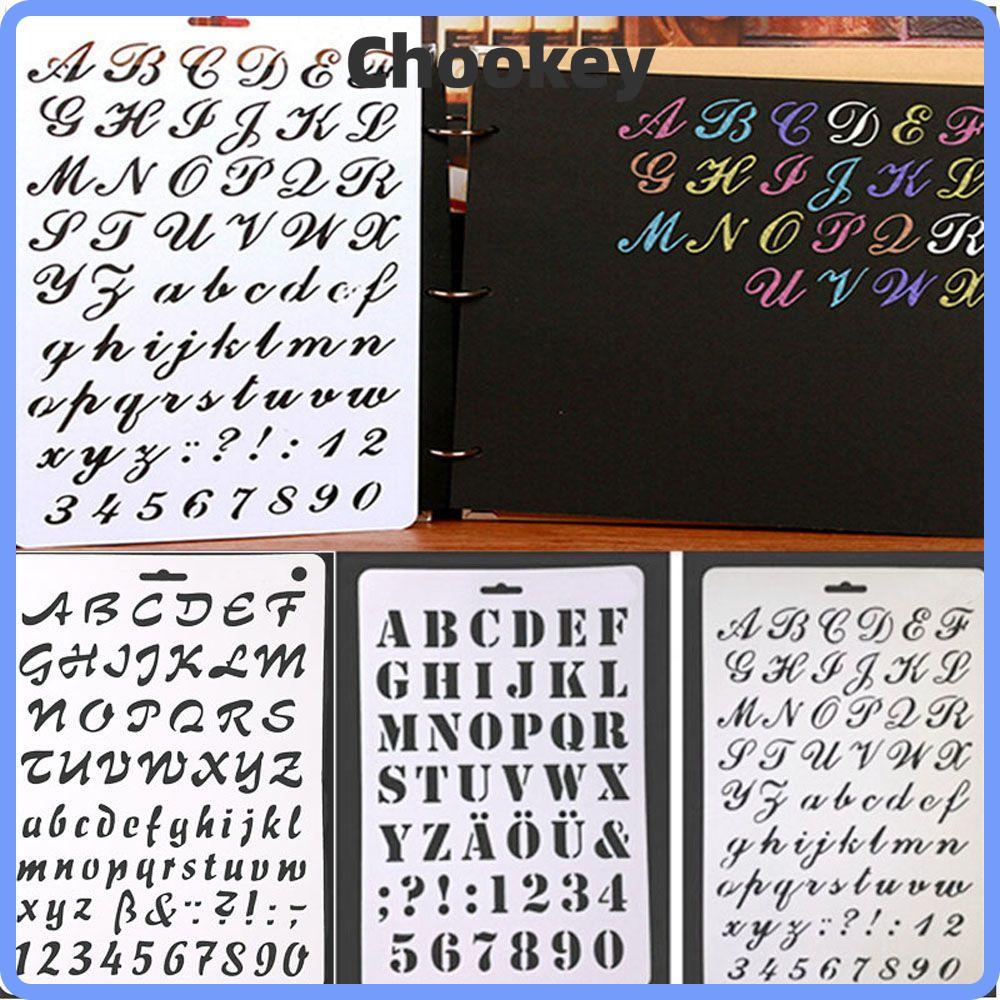 Chookey
A B C D E F
G H I J K L
M N O P Q R
S T U V W X
Y Z a b c d e f
g h i j k l m n
o p q r s t u v w
x y z : ? ! : 1 2
3 4 5 6 7 8 9 0
A B C D E F
G H I J K L
M N O P Q R
U V W X
A B C D E F
G H I J K L M
N O P Q R S
T U V W X Y Z
a b c d e f g h i j k l
m n o p q r s t u v w
x y z ß & ¨ ? ! : ; -
1 2 3 4 5 6 7 8 9 0
A B C D E F
G H I J K L
M N O P Q R
S T U V W X
Y Z Ä Ö Ü &
; ? ! : 1 2 3 4
5 6 7 8 9 0
A B C D E F
G H I J K L
M N O P Q R
S T U V W X
Y Z a b c d e f
g h i j k l m n
o p q r s t u v w
x y z : ? ! : 1 2
3 4 5 6 7 8 9 0